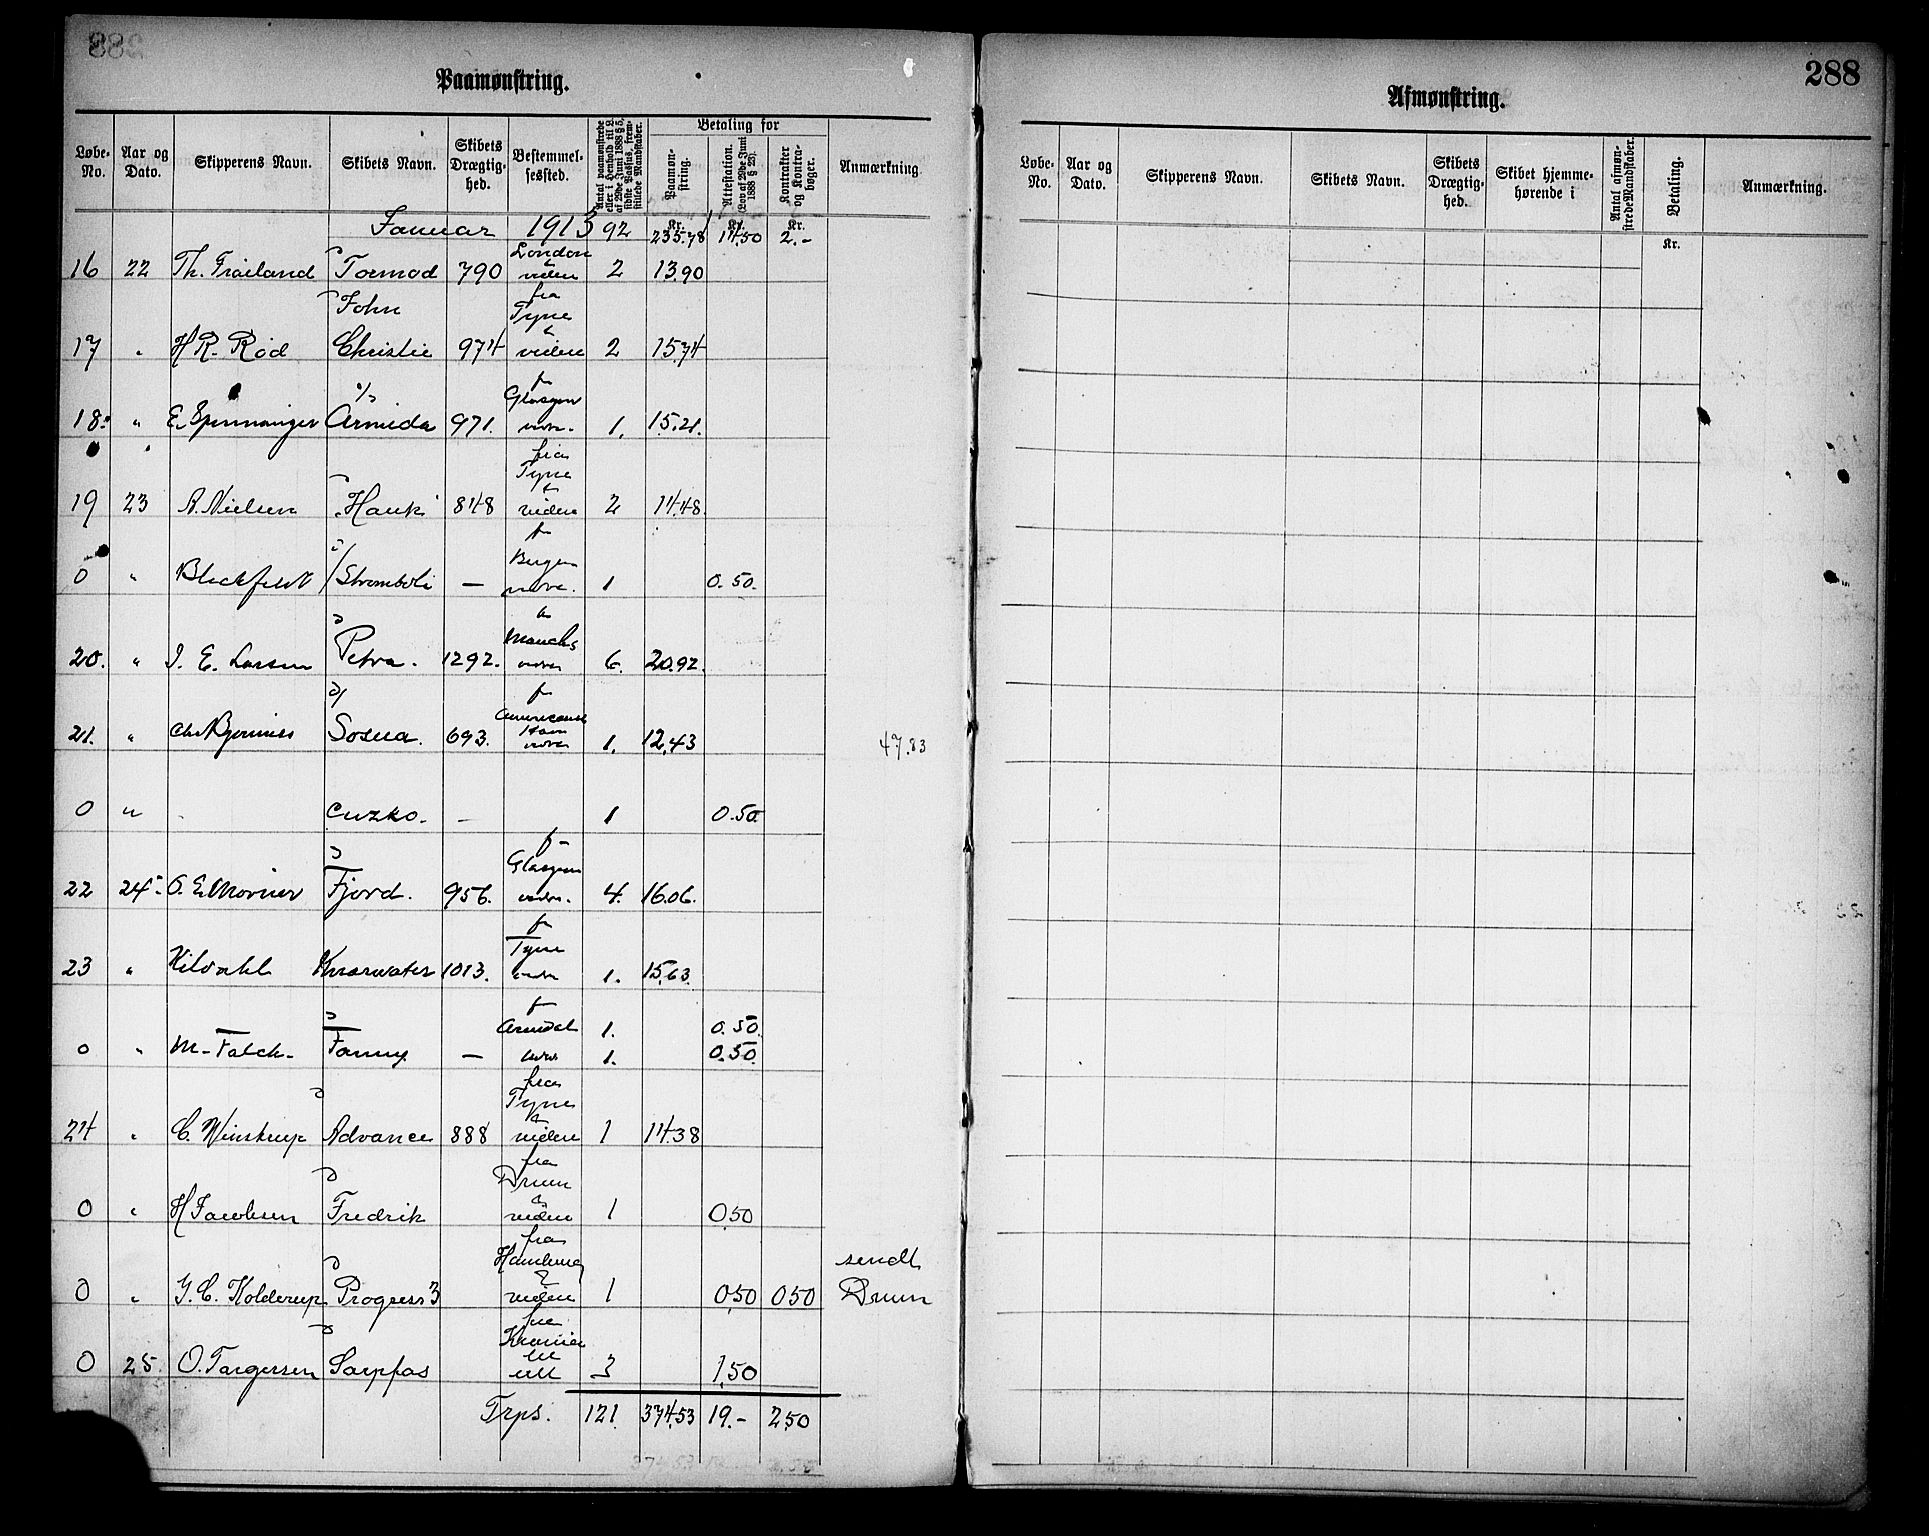 Paamønstring.
Løbe-No. Aar og Dato. Skipperens Navn. Skibets Navn. Skibets Drægtig-hed. Bestemmel-sessted. Antal paamønstrede eller i Henhold til L. af 29de Juni 1888 § 5, sidste Passus, frem-stillede Mandskaber. Betaling for Paamøn-string. Attestation. (Lov af 29de Juni 1888 § 23). Kontrakter og Kontra-bøger. Anmærkning.
Kr. Kr. Kr.
Januar 1913 92 235.78 14.50 2.-
London
16 22 Th. Frøiland Tormod 790 viden 2 13.90
fra
John Tyne
17 " H R. Rød Christie 974 viden 2 15.74
Glasgow
18. " E. Spinnanger Armida 971. 1. 15.21.
fra
Tyne
19 23 A. Nielsen Hauk 848 viden 2 14.48
Bergen
0 " Blechfeldt Stromboli — 1 0.50.
20. " J. E. Larsen Petra. 1292. 6. 20.92.
21. " Sosua. 693. 1. 12,43 47.83
0 " Cuzko. - 1 0.50.
Glasgow
22 24 Fjord. 956. 4. 16.06.
Tyne
23 " Kildahl 1013. 1. 15,63.
Arendal 1. 0.50.
0 " M. Falck. Fanny — 1. 0.50.
fra
Tyne
24 " C. Winstrup Advance 888 viden 1 14.38
fra
Drmn
0 " H Jacobsen Fredrik viden 1 0,50
fra
Hamburg sendt
0 " J. C. Kolderup Progress 3 viden 1 0,50 0,50 Drmn
fra
0 25. O. Torgersen Sarpfos 3 1,50
Trps. 121 374,53 19.- 2,50
288
Afmønstring.
Løbe-No. Aar og Dato. Skipperens Navn. Skibets Navn. Skibets Drægtig-hed. Skibet hjemme-hørende i Antal afmøn-strede Mandskaber. Betaling. Anmærkning.
Kr.